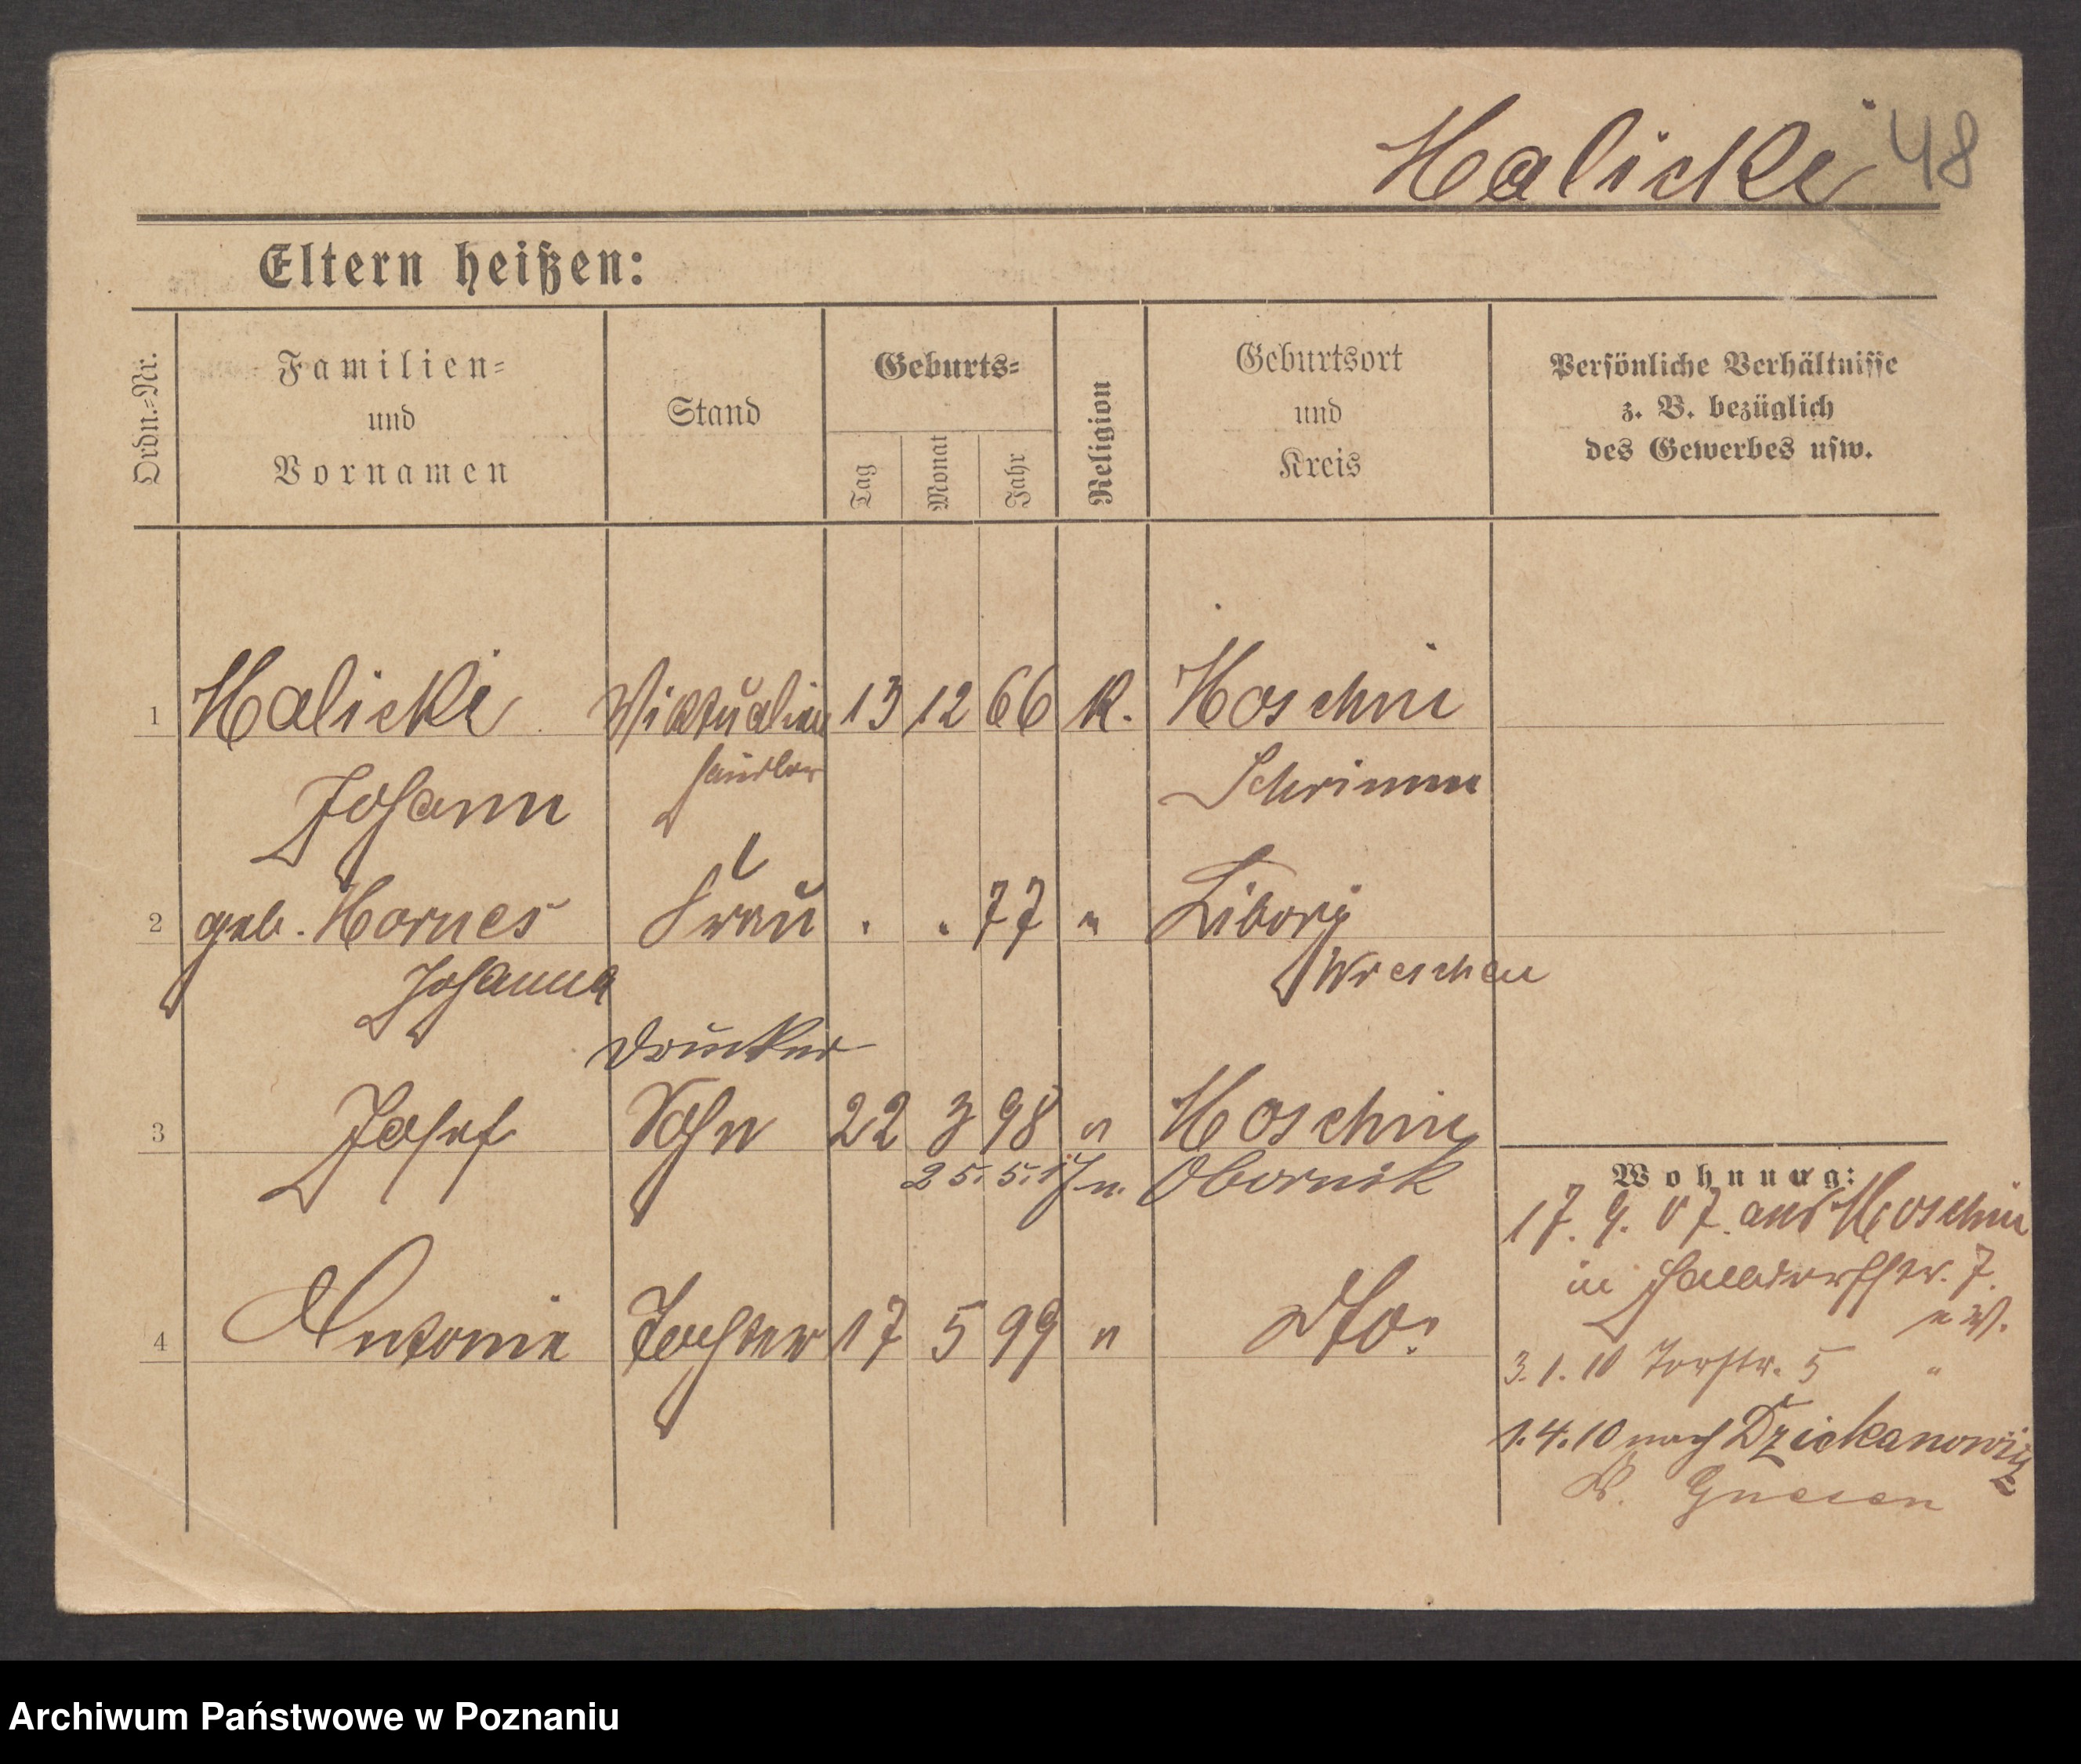 Halicki 48
Eltern heißen:
Ordn.-Nr.
Familien-
und
Vornamen
Stand
Geburts-
Tag
Monat
Jahr
Religion
Geburtsort
und
Kreis
Persönliche Verhältnisse
z. B. bezüglich
des Gewerbes usw.
1 Halicki Viktualien 13 12 66 K. Moschin
händler Schrimm
Johann
2 geb. Frau . . 77 "
Johanna Wreschen
Drucker
3 Josef Sohn 22 3 98 " Moschin
25. 5. 17 n. Obornik
Wohnung:
17. 9. 07. aus Moschin
in 7.
n W.
4 Antonie Tochter 17 5 99 " Dto.
3. 1. 10 Torstr. 5 "
1. 4. 10 nach Dziekanowitz
K. Gnesen
Archiwum Państwowe w Poznaniu